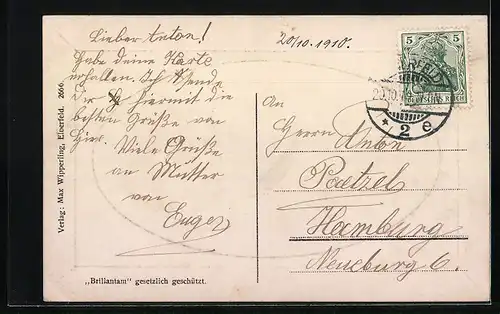 Lieber Anton!
20/10. 1910.
Habe deine Karte
erhalten. Ich sende
Dir hiermit die
besten Grüße von
hier. Viele Grüße
an Mutter
von
Eugen
An
Herrn Anton
Paetzel
Hamburg
Neueburg 6.
5 5
DEUTSCHES REICH
* 2 e
Verlag: Max Wipperling, Elberfeld. 2666
„Brillantam" gesetzlich geschützt.